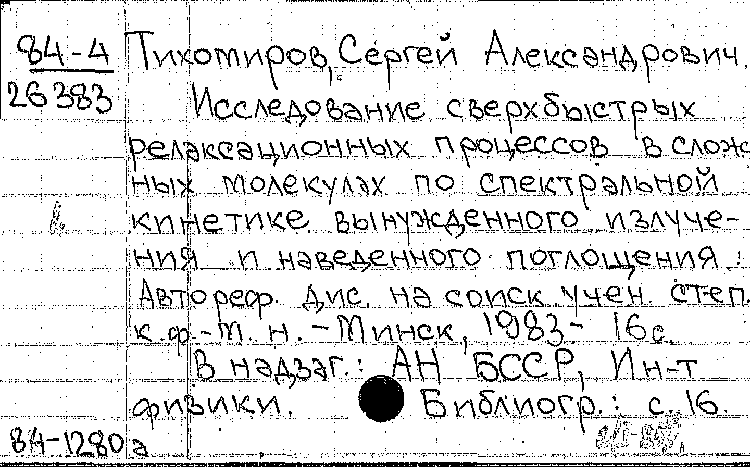 84-4
26383
Тихомиров, Сергей Александрович.
Исследование сверхбыстрых
релаксационных процессов в слож
ных молекулах по спектральной
кинетике вынужденного излуче-
ния и наведенного поглощения :
Автореф. дис. на соиск. учен. степ.
к. ф.-м. н. - Минск, 1983 - 16 с.
В надзаг.: АН БССР, Ин-т
физики. Библиогр.: с. 16.
84-1280а